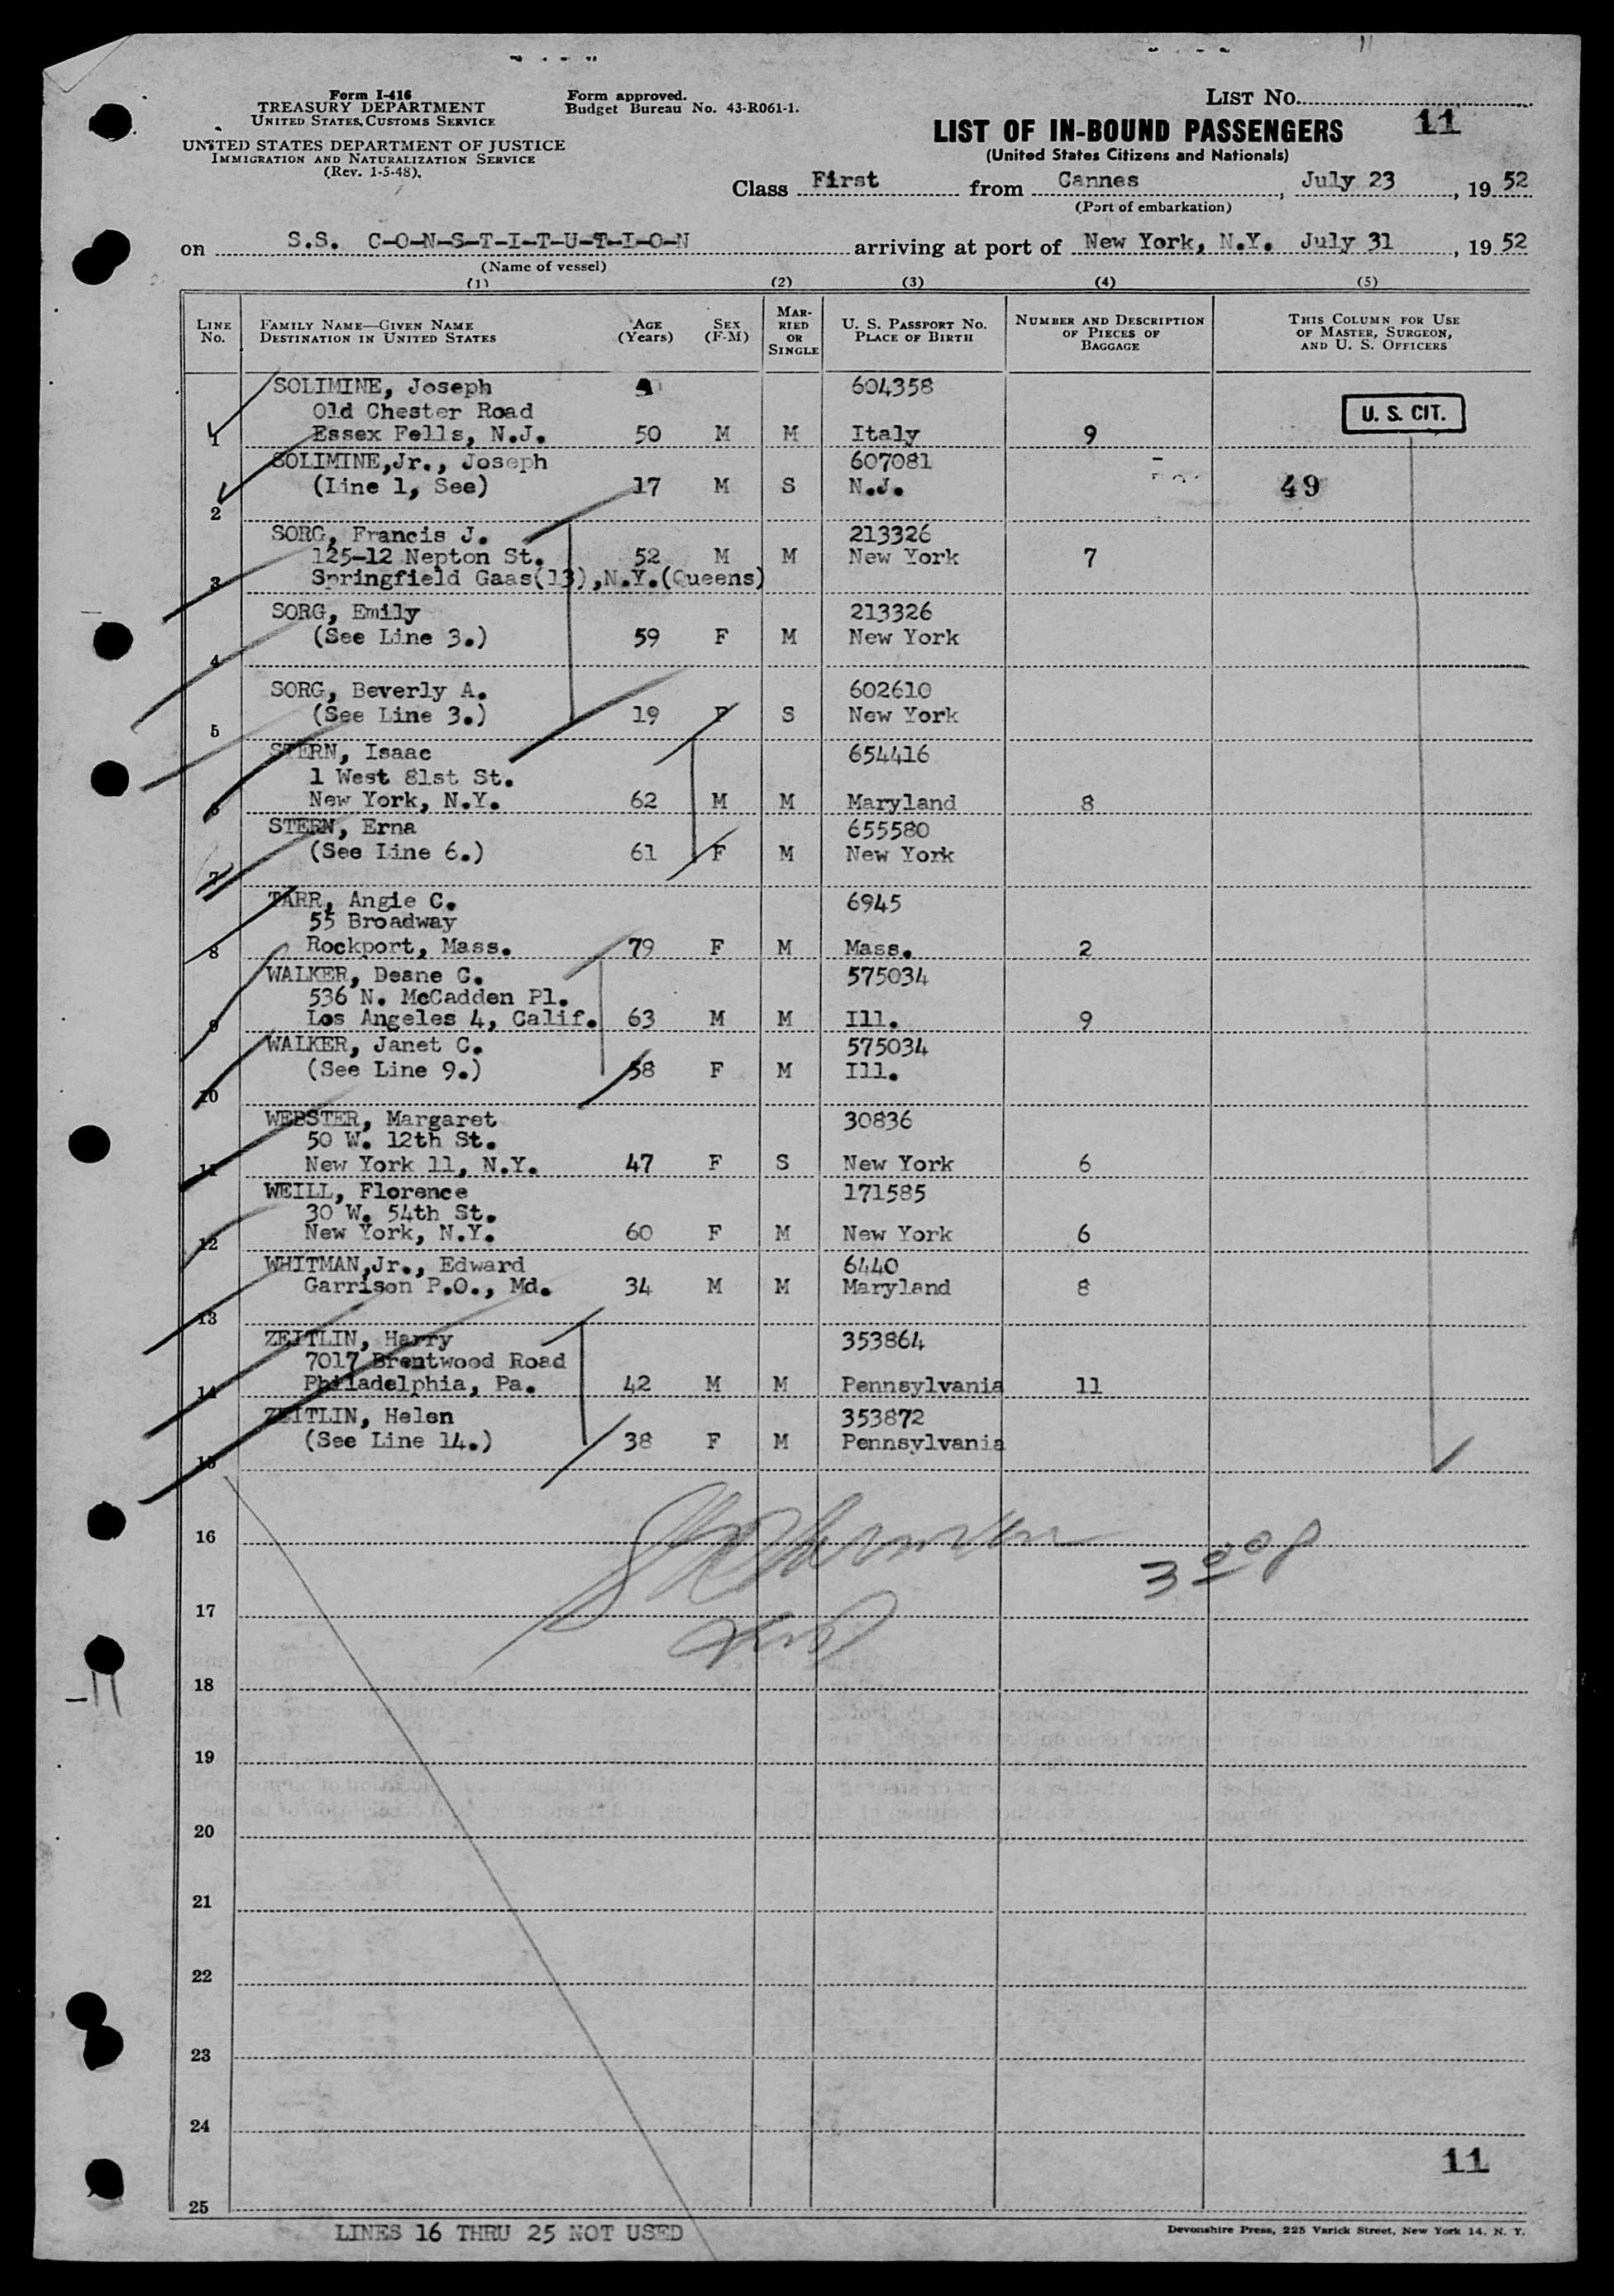 Form I-416
TREASURY DEPARTMENT
UNITED STATES CUSTOMS SERVICE
UNITED STATES DEPARTMENT OF JUSTICE
IMMIGRATION AND NATURALIZATION SERVICE
(Rev. 1-5-48).
Form approved.
Budget Bureau No. 43-R061-1.
LIST NO. 11
LIST OF IN-BOUND PASSENGERS
(United States Citizens and Nationals)
Class First from Cannes, July 23, 19 52
(Port of embarkation)
on S.S. C-O-N-S-T-I-T-U-T-I-O-N arriving at port of New York, N.Y. July 31, 19 52
(Name of vessel)
(1) (2) (3) (4) (5)
LINE NO. FAMILY NAME—GIVEN NAME DESTINATION IN UNITED STATES AGE (Years) SEX (F-M) MARRIED OR SINGLE U. S. PASSPORT NO. PLACE OF BIRTH NUMBER AND DESCRIPTION OF PIECES OF BAGGAGE THIS COLUMN FOR USE OF MASTER, SURGEON, AND U. S. OFFICERS
SOLIMINE, Joseph 604358
Old Chester Road U. S. CIT.
1 Essex Fells, N.J. 50 M M Italy 9
SOLIMINE,Jr., Joseph 607081
(Line 1, See) 17 M S N.J. 49
2
SORG, Francis J. 213326
125-12 Nepton St. 52 M M New York 7
3 Springfield Gaas(13),N.Y.(Queens)
SORG, Emily 213326
(See Line 3.) 59 F M New York
4
SORG, Beverly A. 602610
(See Line 3.) 19 F S New York
5
STERN, Isaac 654416
1 West 81st St.
6 New York, N.Y. 62 M M Maryland 8
STERN, Erna 655580
(See Line 6.) 61 F M New York
7
TARR, Angie C. 6945
55 Broadway
8 Rockport, Mass. 79 F M Mass. 2
WALKER, Deane C. 575034
536 N. McCadden Pl.
9 Los Angeles 4, Calif. 63 M M Ill. 9
WALKER, Janet C. 575034
(See Line 9.) 58 F M Ill.
10
WEBSTER, Margaret 30836
50 W. 12th St.
11 New York 11, N.Y. 47 F S New York 6
WEILL, Florence 171585
30 W. 54th St.
12 New York, N.Y. 60 F M New York 6
WHITMAN,Jr., Edward 6440
Garrison P.O., Md. 34 M M Maryland 8
13
ZEITLIN, Harry 353864
7017 Brentwood Road
14 Philadelphia, Pa. 42 M M Pennsylvania 11
ZEITLIN, Helen 353872
(See Line 14.) 38 F M Pennsylvania
15
16
17
18
19
20
21
22
23
24
11
25
LINES 16 THRU 25 NOT USED
Devonshire Press, 225 Varick Street, New York 14, N. Y.